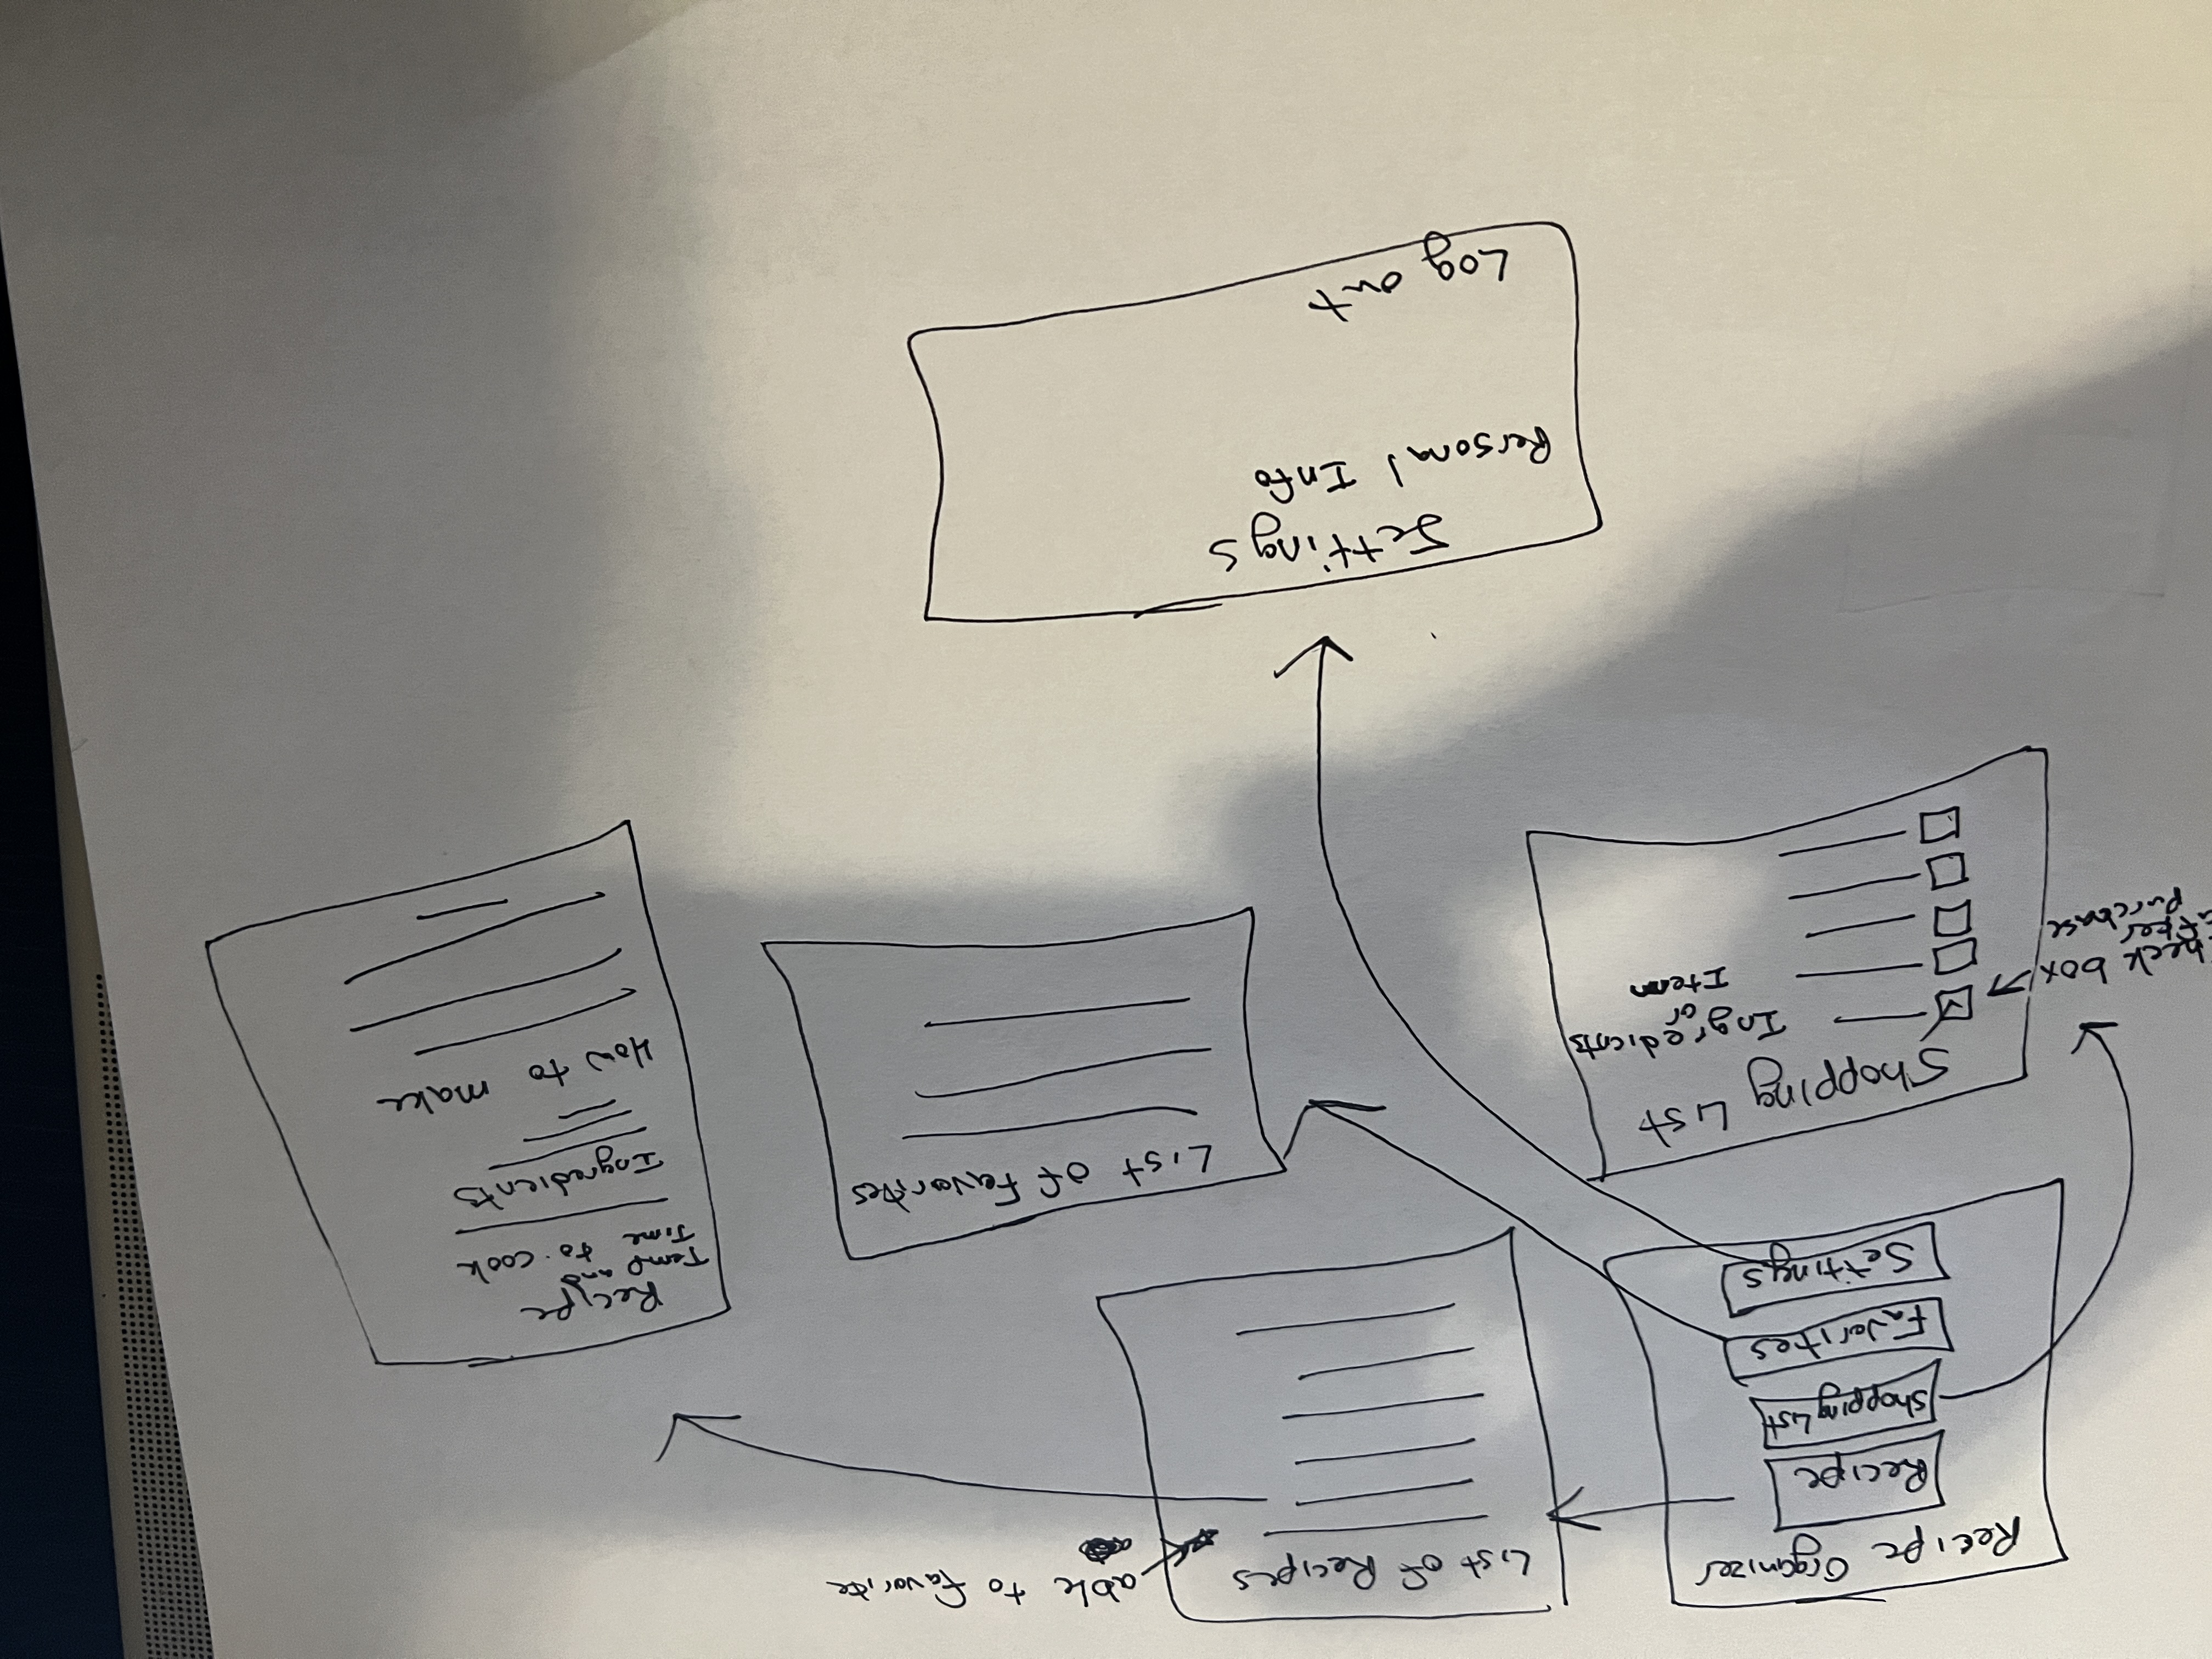 Recipe Organizer
Recipe
Shopping List
Favorites
Settings
List of Recipes
able to favorite
Recipe
Temp and
Time to cook
Ingredients
How to make
List of Favorites
Shopping List
Ingredients
or
Item
box
after
purchase
Settings
Personal Info
Log out